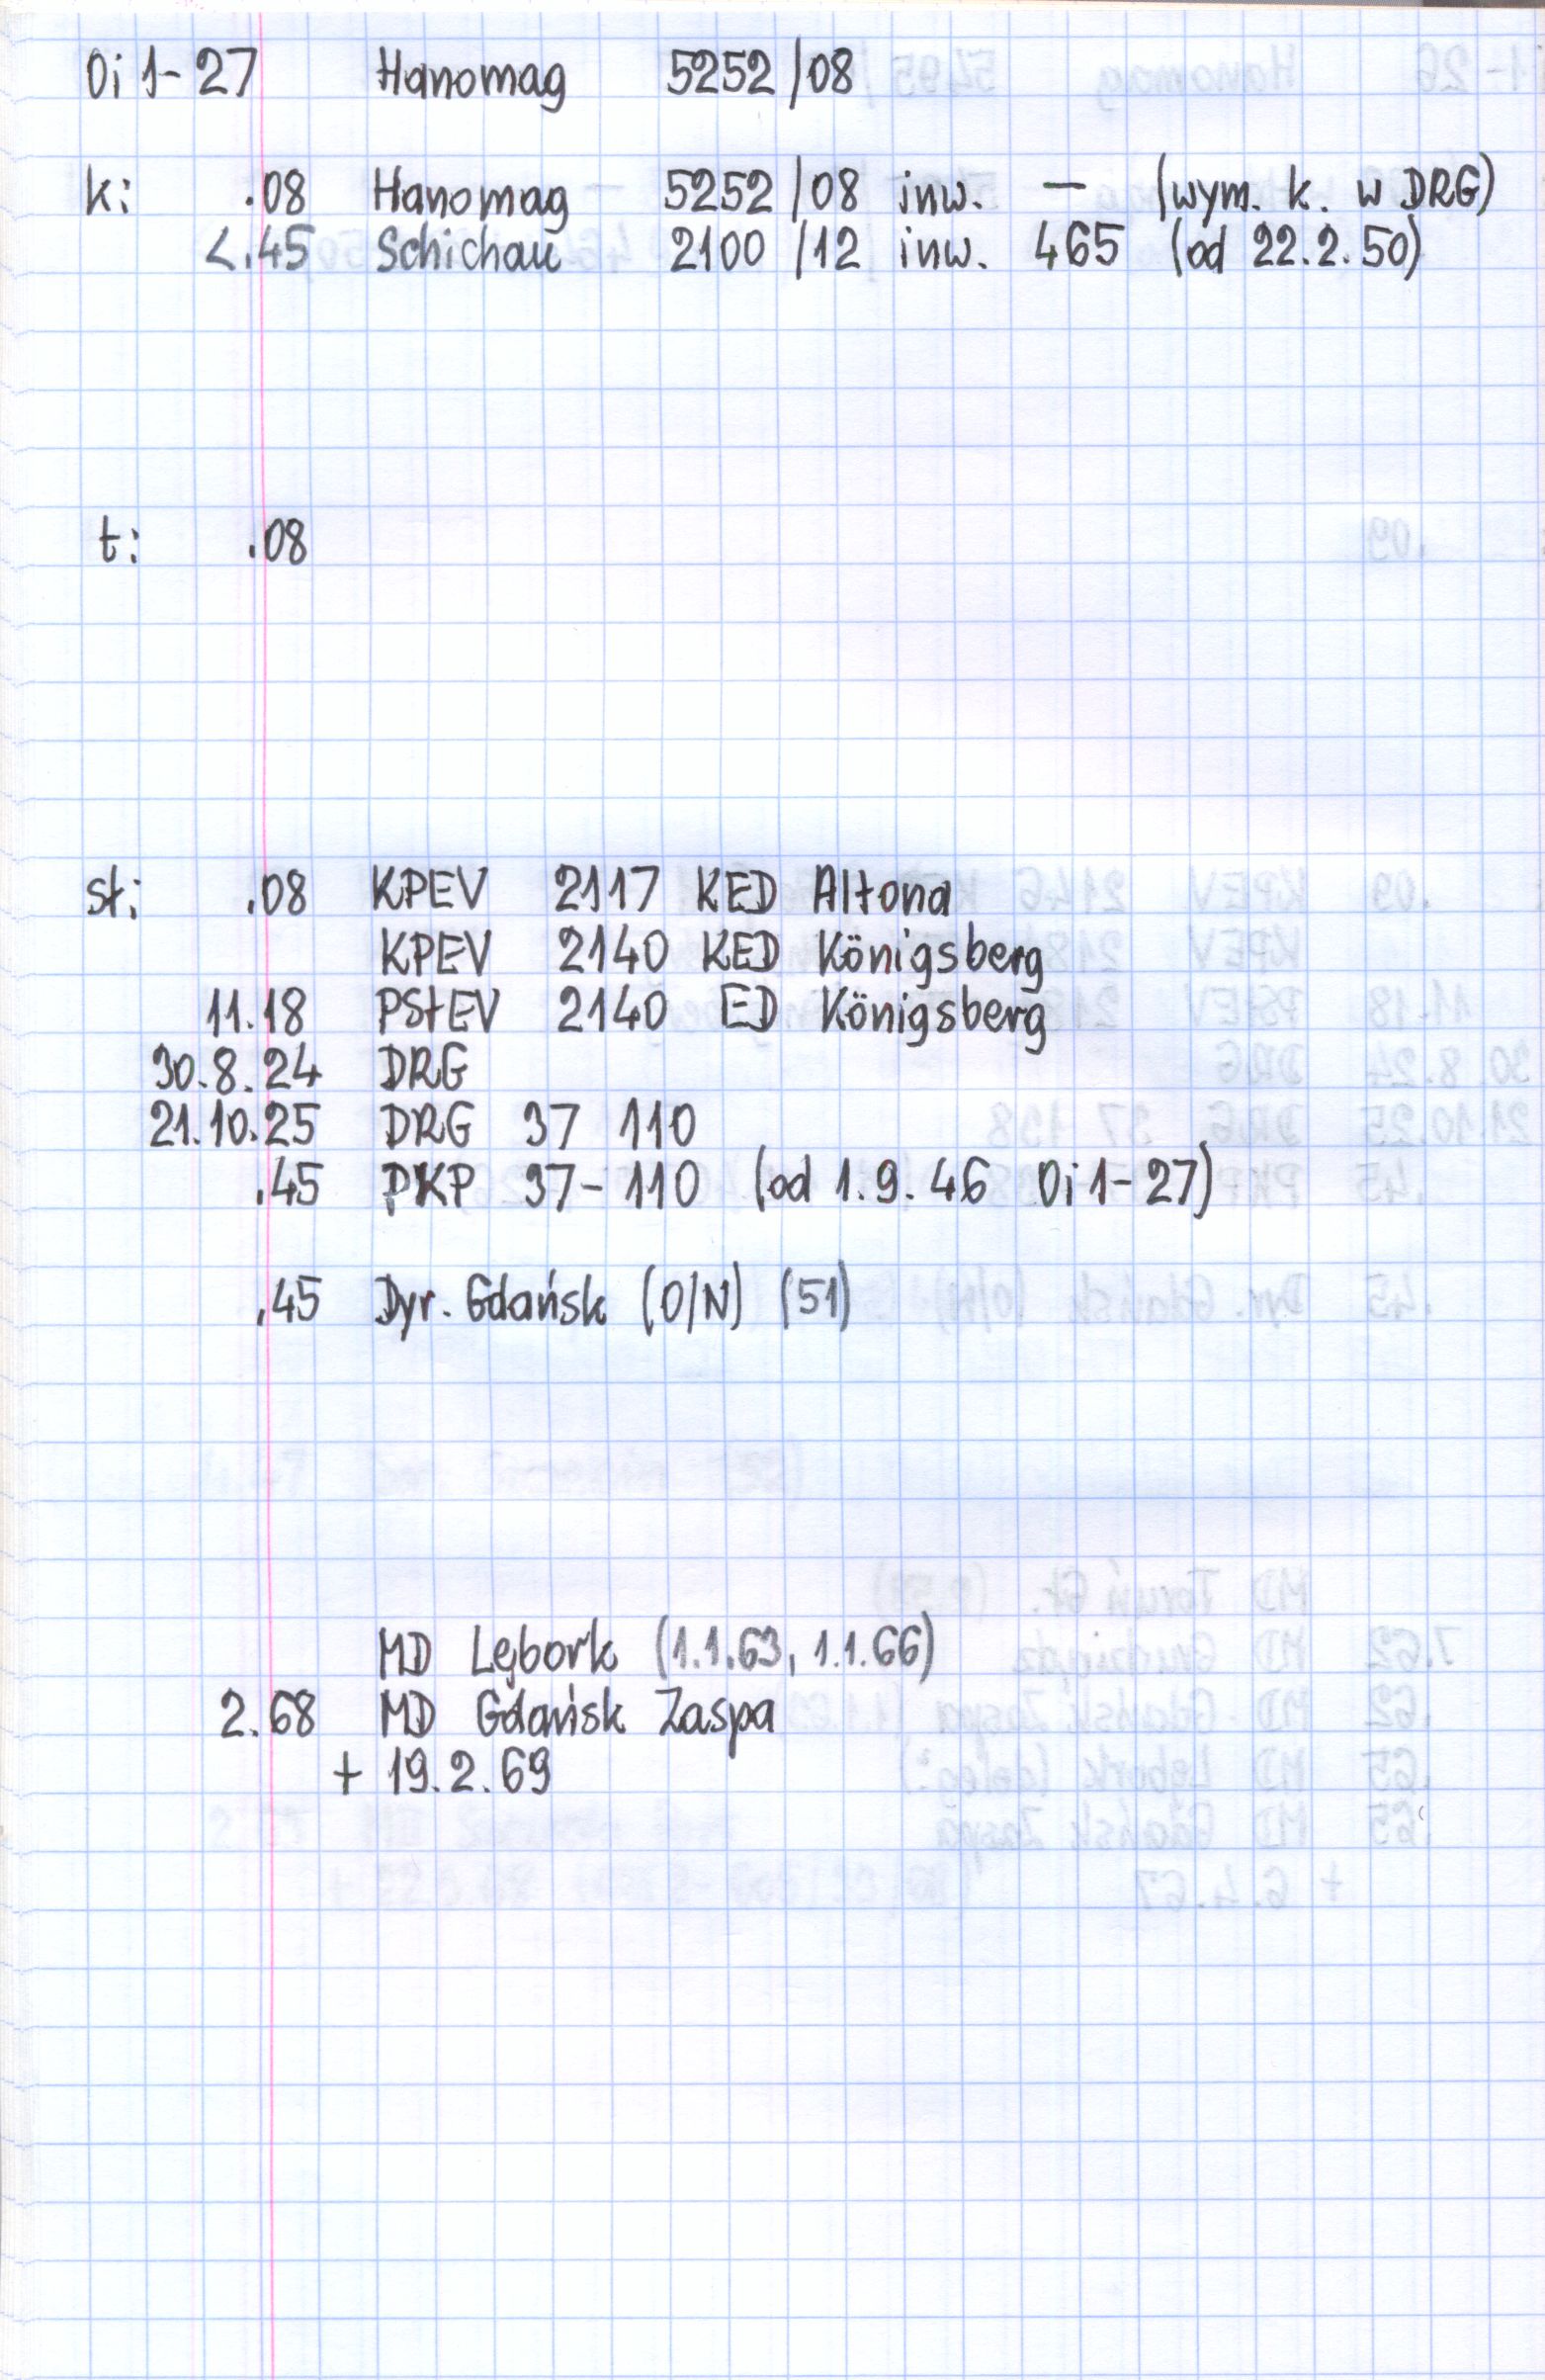 Oi 1-27 Hanomag 5252/08
k: .08 Hanomag 5252/08 inw. — (wym. k. w DRG)
<.45 Schichau 2100/12 inw. 465 (od 22.2.50)
t: .08
st: .08 KPEV 2117 KED Altona
KPEV 2140 KED Königsberg
11.18 PStEV 2140 ED Königsberg
30.8.24 DRG
21.10.25 DRG 37 110
.45 PKP 37-110 (od 1.9.46 Oi 1-27)
.45 Dyr. Gdańsk (O/N) (51)
MD Lębork (1.1.63, 1.1.66)
2.68 MD Gdańsk Zaspa
+ 19.2.69